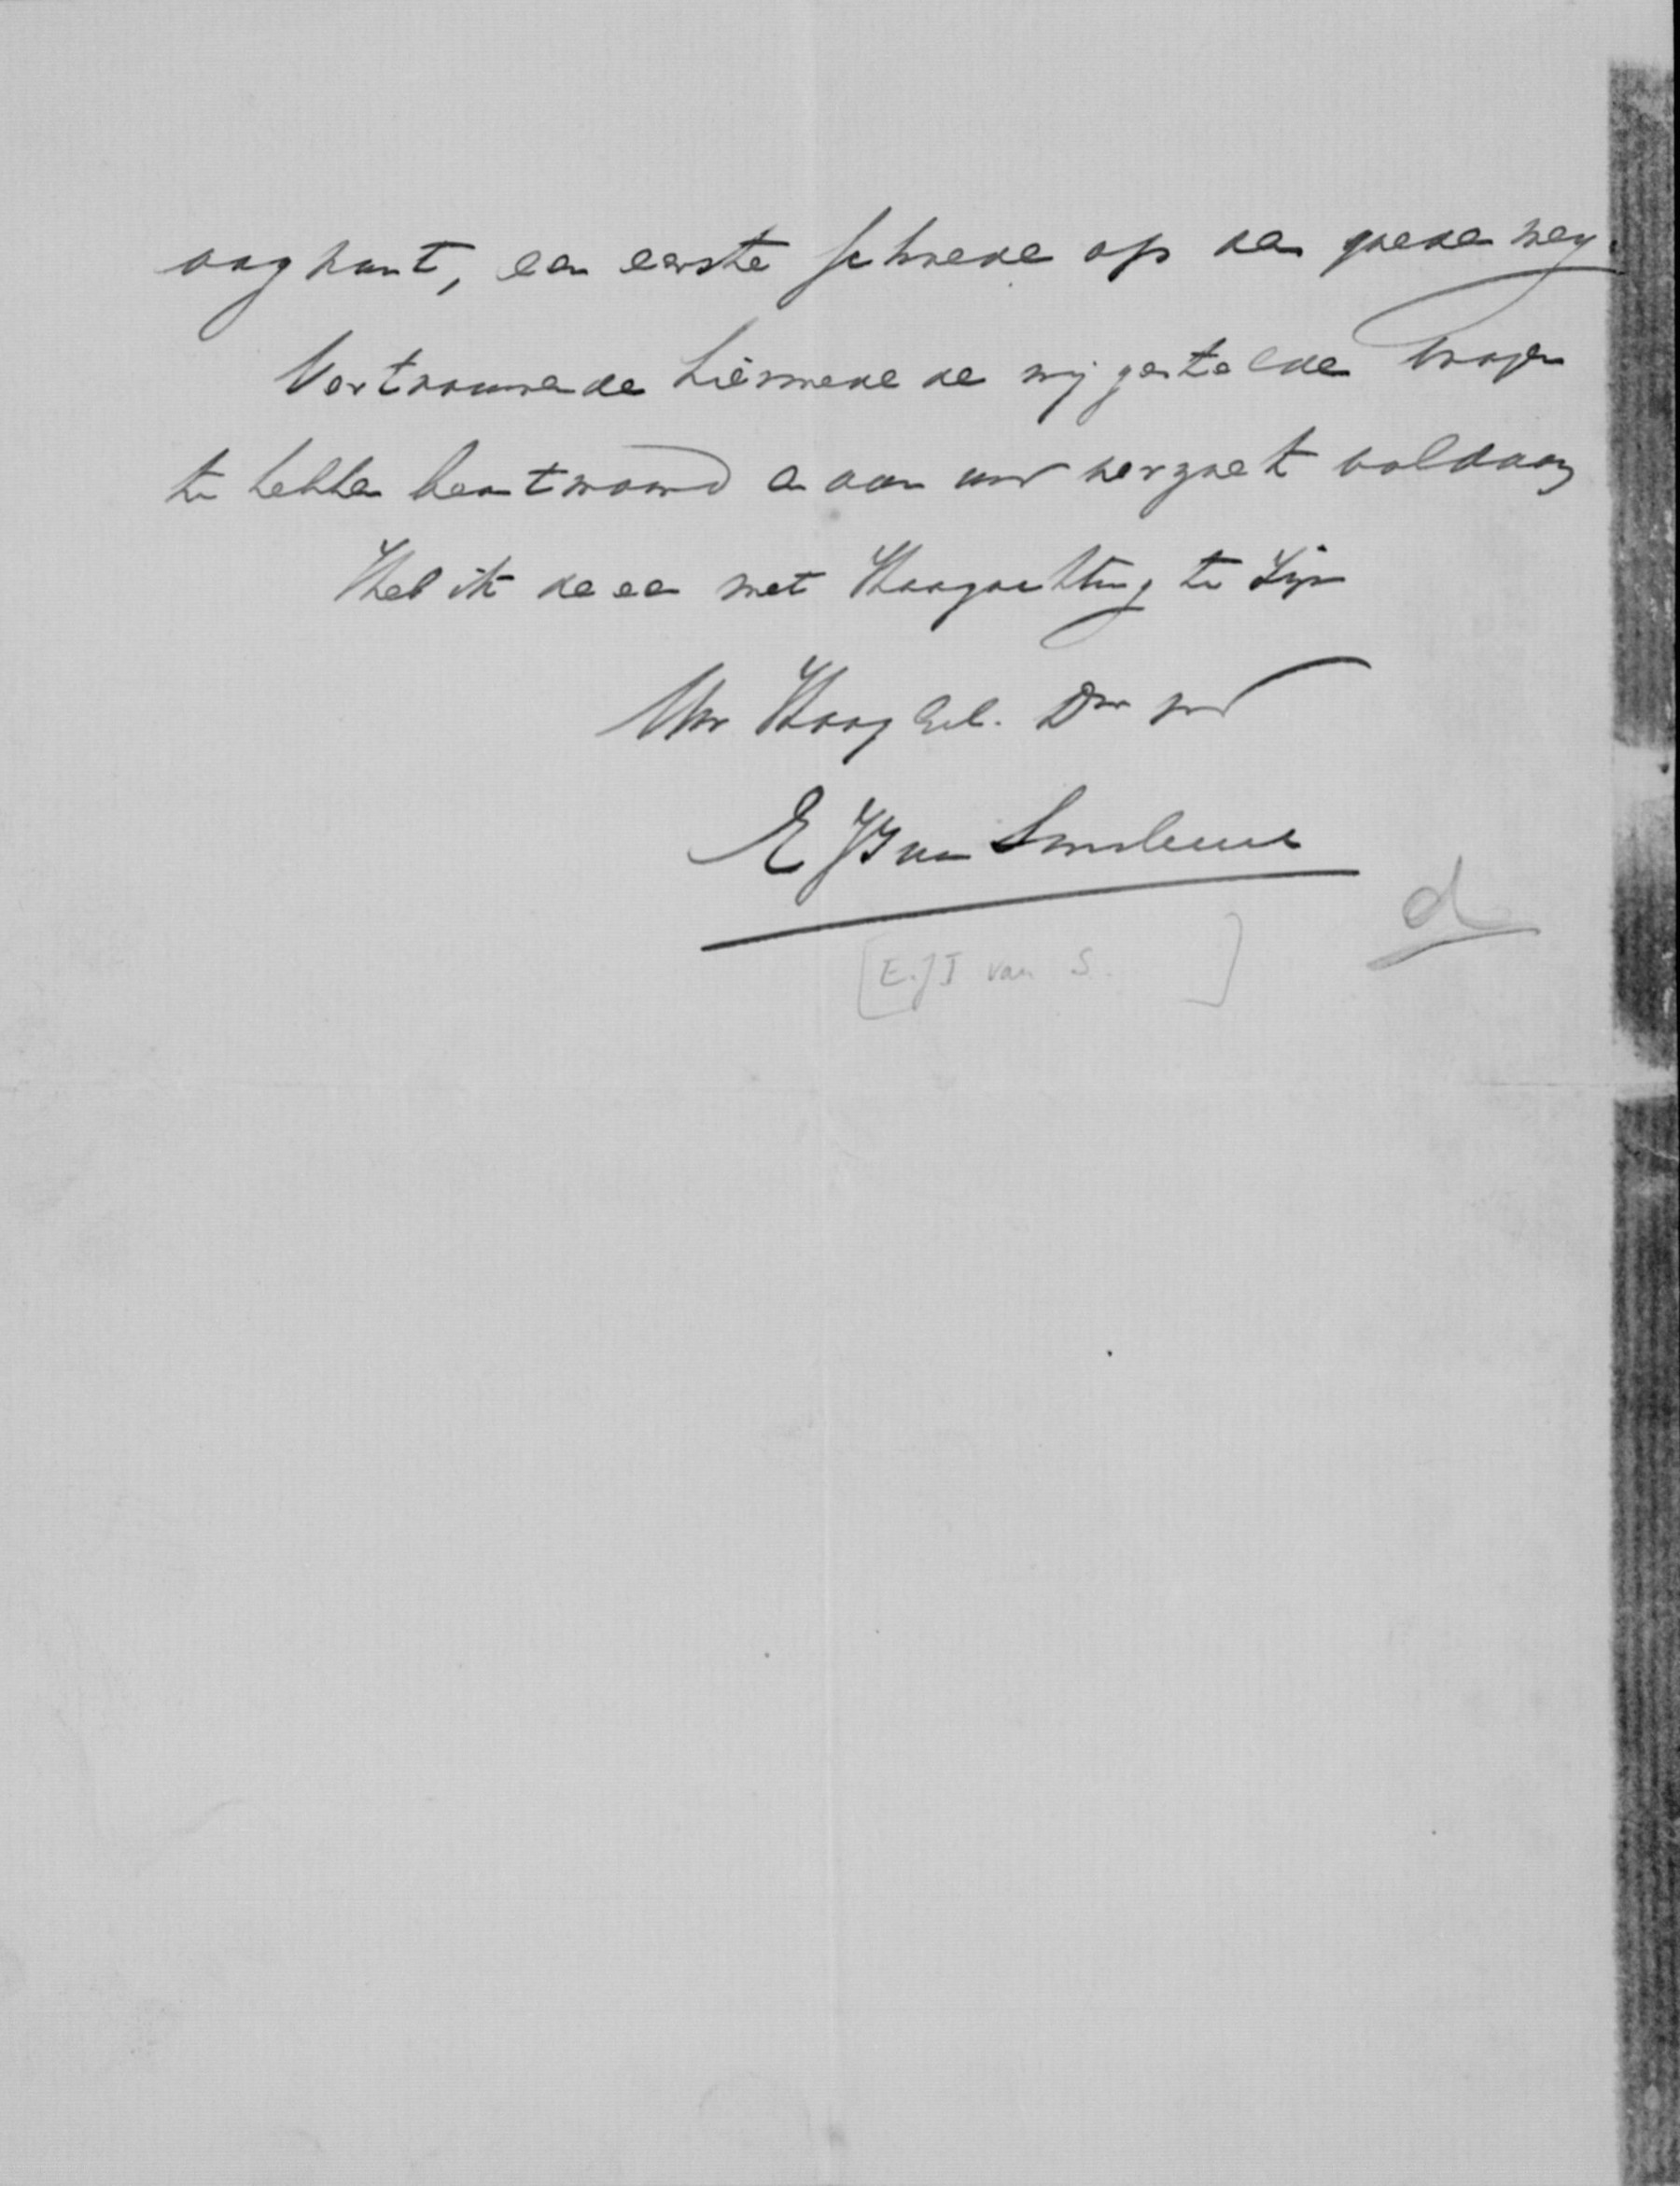 oogpunt, een eerste schrede op den goeden weg.
Vertrouwende hiermede de mij gestelde vragen
te hebben beantwoord en aan uw verzoek voldaan
Heb ik de eer met Hoogachting te zijn
Uw HoogEd. Dnr
E J J van
[E.J J van S. ]
d